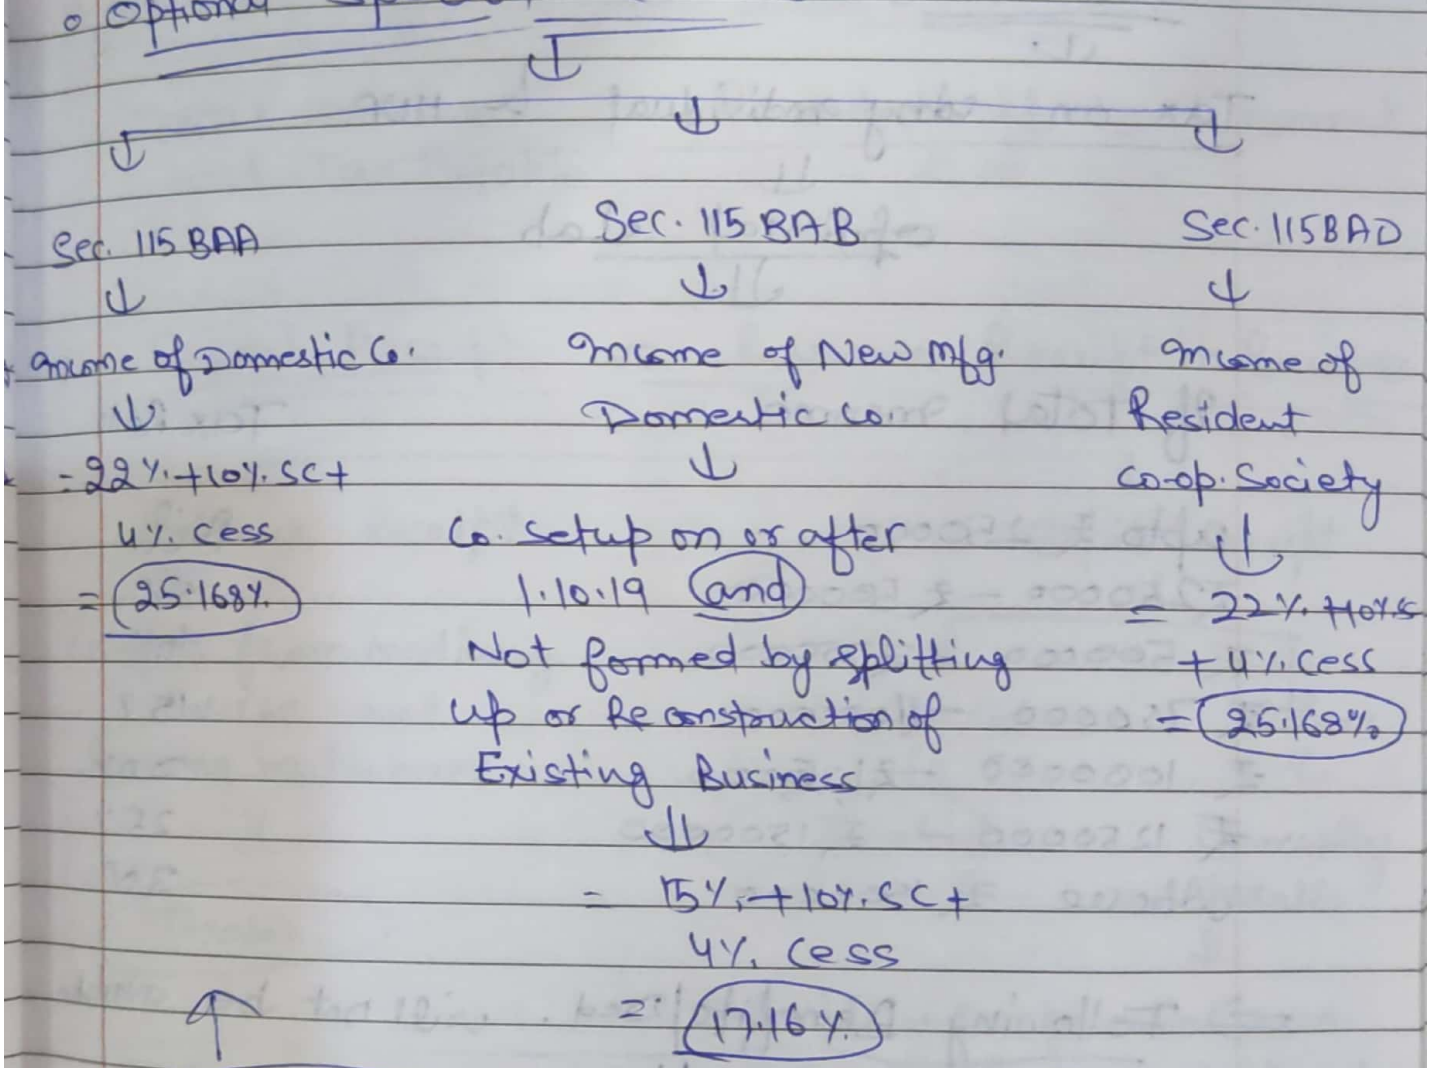 Optional
Sec. 115 BAA
Income of Domestic Co.
= 22% + 10% SC +
4% Cess
= 25.168%
Sec. 115 BAB
Income of New Mfg.
Domestic Co.
Co. Setup on or after
1.10.19 and
Not formed by splitting
up or Reconstruction of
Existing Business
= 15% + 10% SC +
4% Cess
= 17.16%
Sec. 115BAD
Income of
Resident
Co-op. Society
= 22% + 10% S
+ 4% Cess
= 25.168%